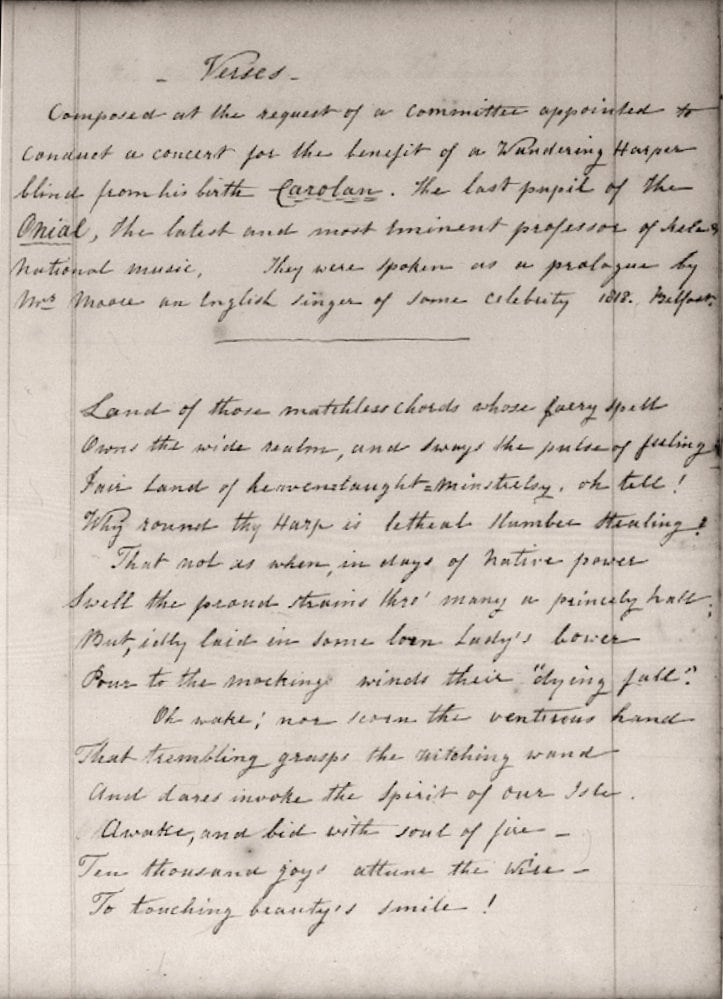 - Verses -
Composed at the request of a committee appointed to
conduct a concert for the benefit of a Wandering Harper
blind from his birth Carolan. The last pupil of the
Onial, the latest and most eminent professor of
National music. They were spoken as a prologue by
Mrs Moore an English singer of some celebrity 1818. Belfast.
Land of those matchless chords whose faery spell
Owns the wide realm, and sways the pulse of feeling
Fair Land of heaven=taught=minstrelsy. oh tell!
Why round thy Harp is letheal slumber stealing?
That not as when, in days of native power
Swell the proud strains thro' many a princely hall;
But, idly laid in some lorn Lady's bower
Pour to the mocking winds their "dying fall".
Oh wake; nor scorn the ventirous hand
That trembling grasps the witching wand
And dares invoke the Spirit of our Isle.
Awake, and bid with soul of fire -
Ten thousand joys attune the Wire -
To touching beauty's smile!